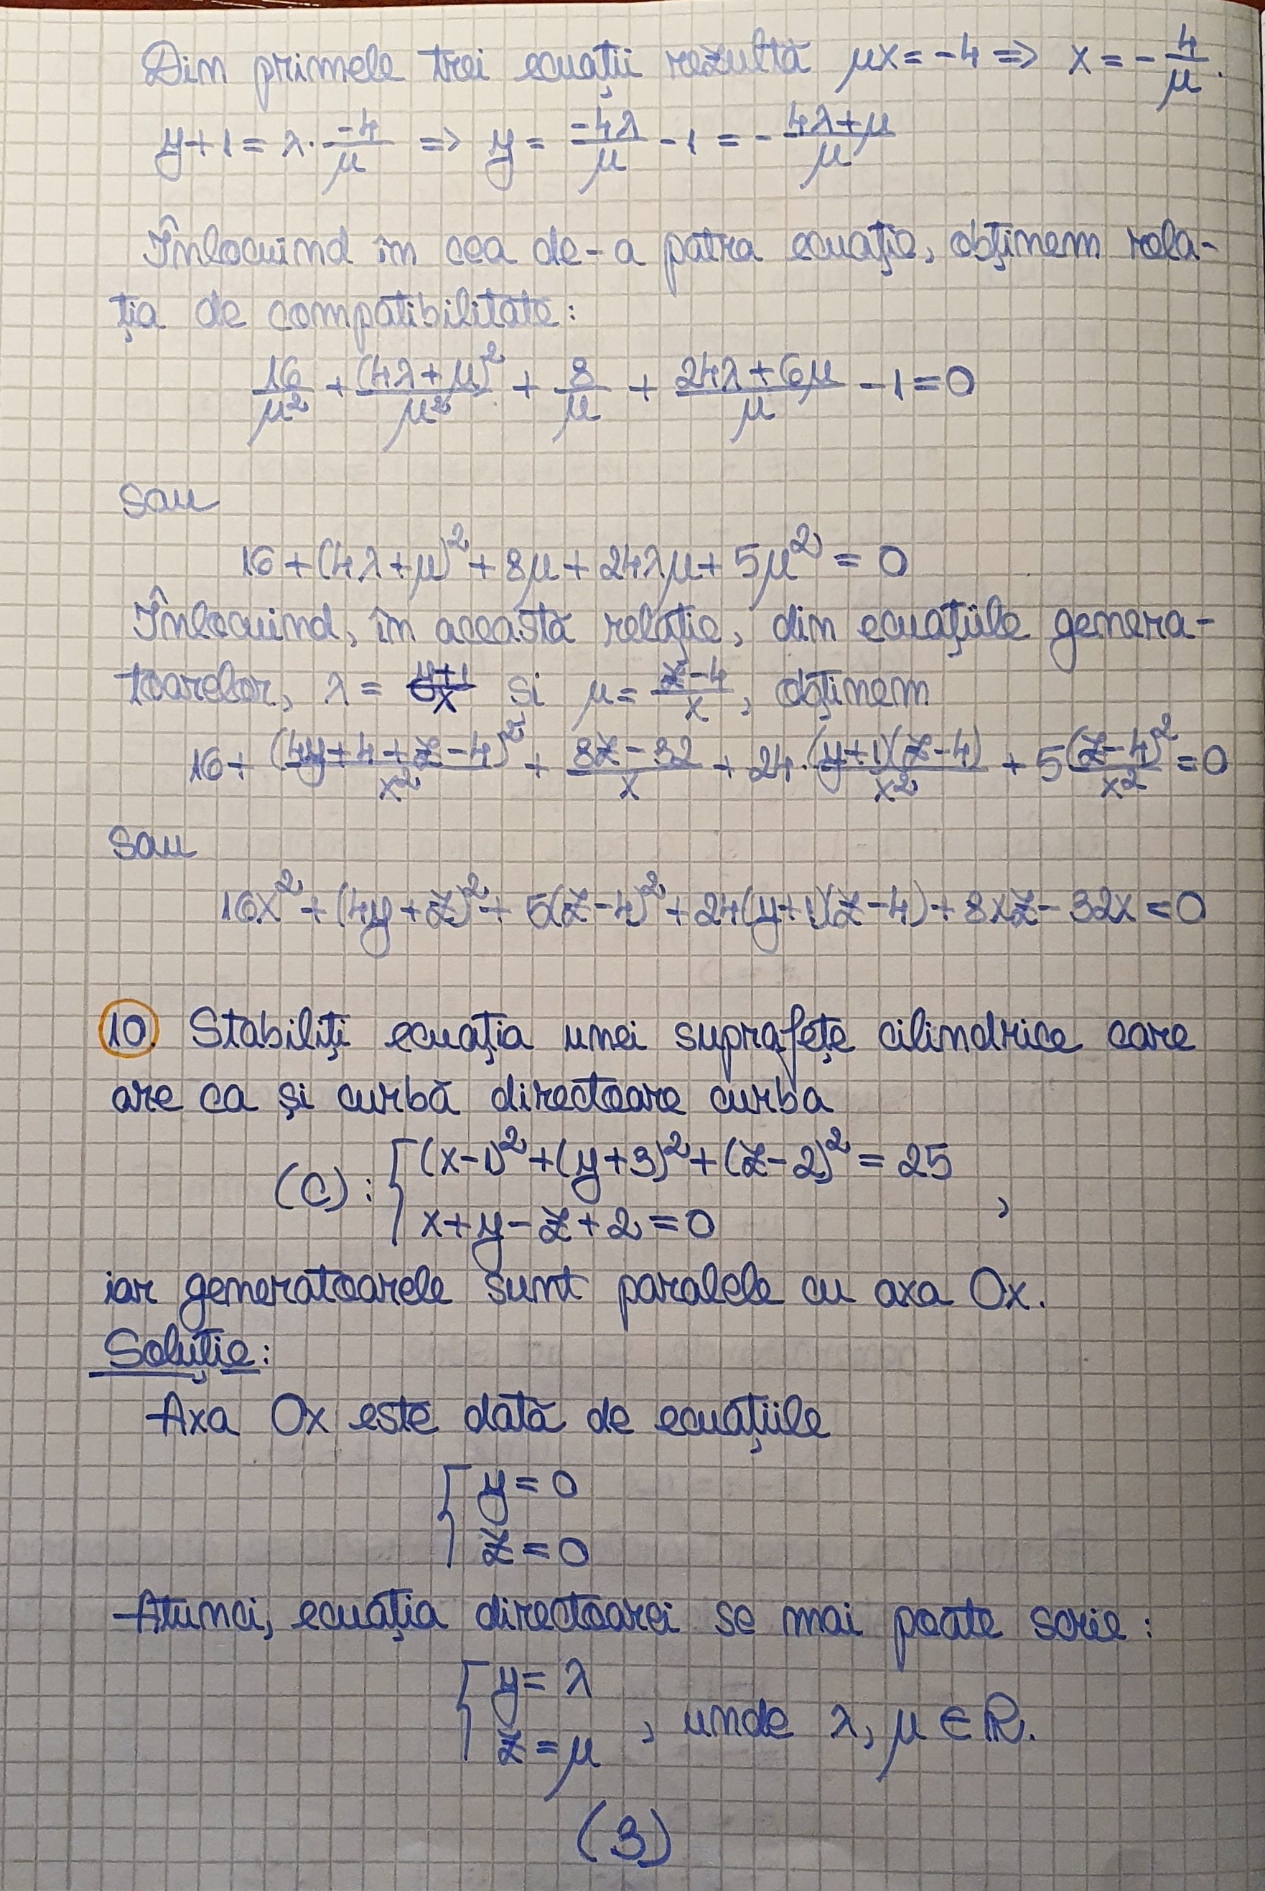 Din primele trei ecuații rezultă μx = -4 => x = -4/μ.
y+1 = λ·(-4)/μ => y = (-4λ)/μ - 1 = -(4λ+μ)/μ
Înlocuind în cea de-a patra ecuație, obținem rela-
ția de compatibilitate:
16/μ² + (4λ+μ)²/μ² + 8/μ + (24λ+6μ)/μ - 1 = 0
sau
16 + (4λ+μ)² + 8μ + 24λμ + 5μ² = 0
Înlocuind, în această relație, din ecuațiile genera-
toarelor, λ = (y+1)/x și μ = (z-4)/x, obținem
16 + (4y+4+z-4)²/x² + (8z-32)/x + 24·(y+1)(z-4)/x² + 5(z-4)²/x² = 0
sau
16x² + (4y+z)² + 5(z-4)² + 24(y+1)(z-4) + 8xz - 32x = 0
10. Stabiliți ecuația unei suprafețe cilindrice care
are ca și curbă directoare curba
(C): { (x-1)² + (y+3)² + (z-2)² = 25
x+y-z+2 = 0 ,
iar generatoarele sunt paralele cu axa Ox.
Soluție:
Axa Ox este dată de ecuațiile
{ y = 0
z = 0
Atunci, ecuația directoarei se mai poate scrie:
{ y = λ
z = μ , unde λ, μ ∈ ℝ.
(3)